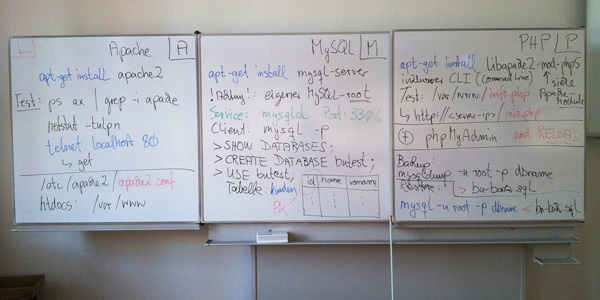 L
Apache A
apt-get install apache2
Test: ps ax | grep -i apache
netstat -tulpn
telnet localhost 80
↳ get
/etc/apache2/apache2.conf
htdocs: /var/www
MySQL M
apt-get install mysql-server
!Achtung!: eigener MySQL-root
Service: mysqld Port: 3306
Client: mysql -p
> SHOW DATABASES;
> CREATE DATABASE butest;
> USE butest;
Tabelle: kunden
id name vorname
PK
PHP P
apt-get install libapache2-mod-php5
inklusive CLI (Command Line)
↑ siehe Apache Module
Test: /var/www/info.php
↳ http://<server-ip>/info.php
+ phpMyAdmin und RELOAD
Backup
mysqldump -u root -p dbname
> bu-
.sql
Restore:
mysql -u root -p dbname < bu-
.sql